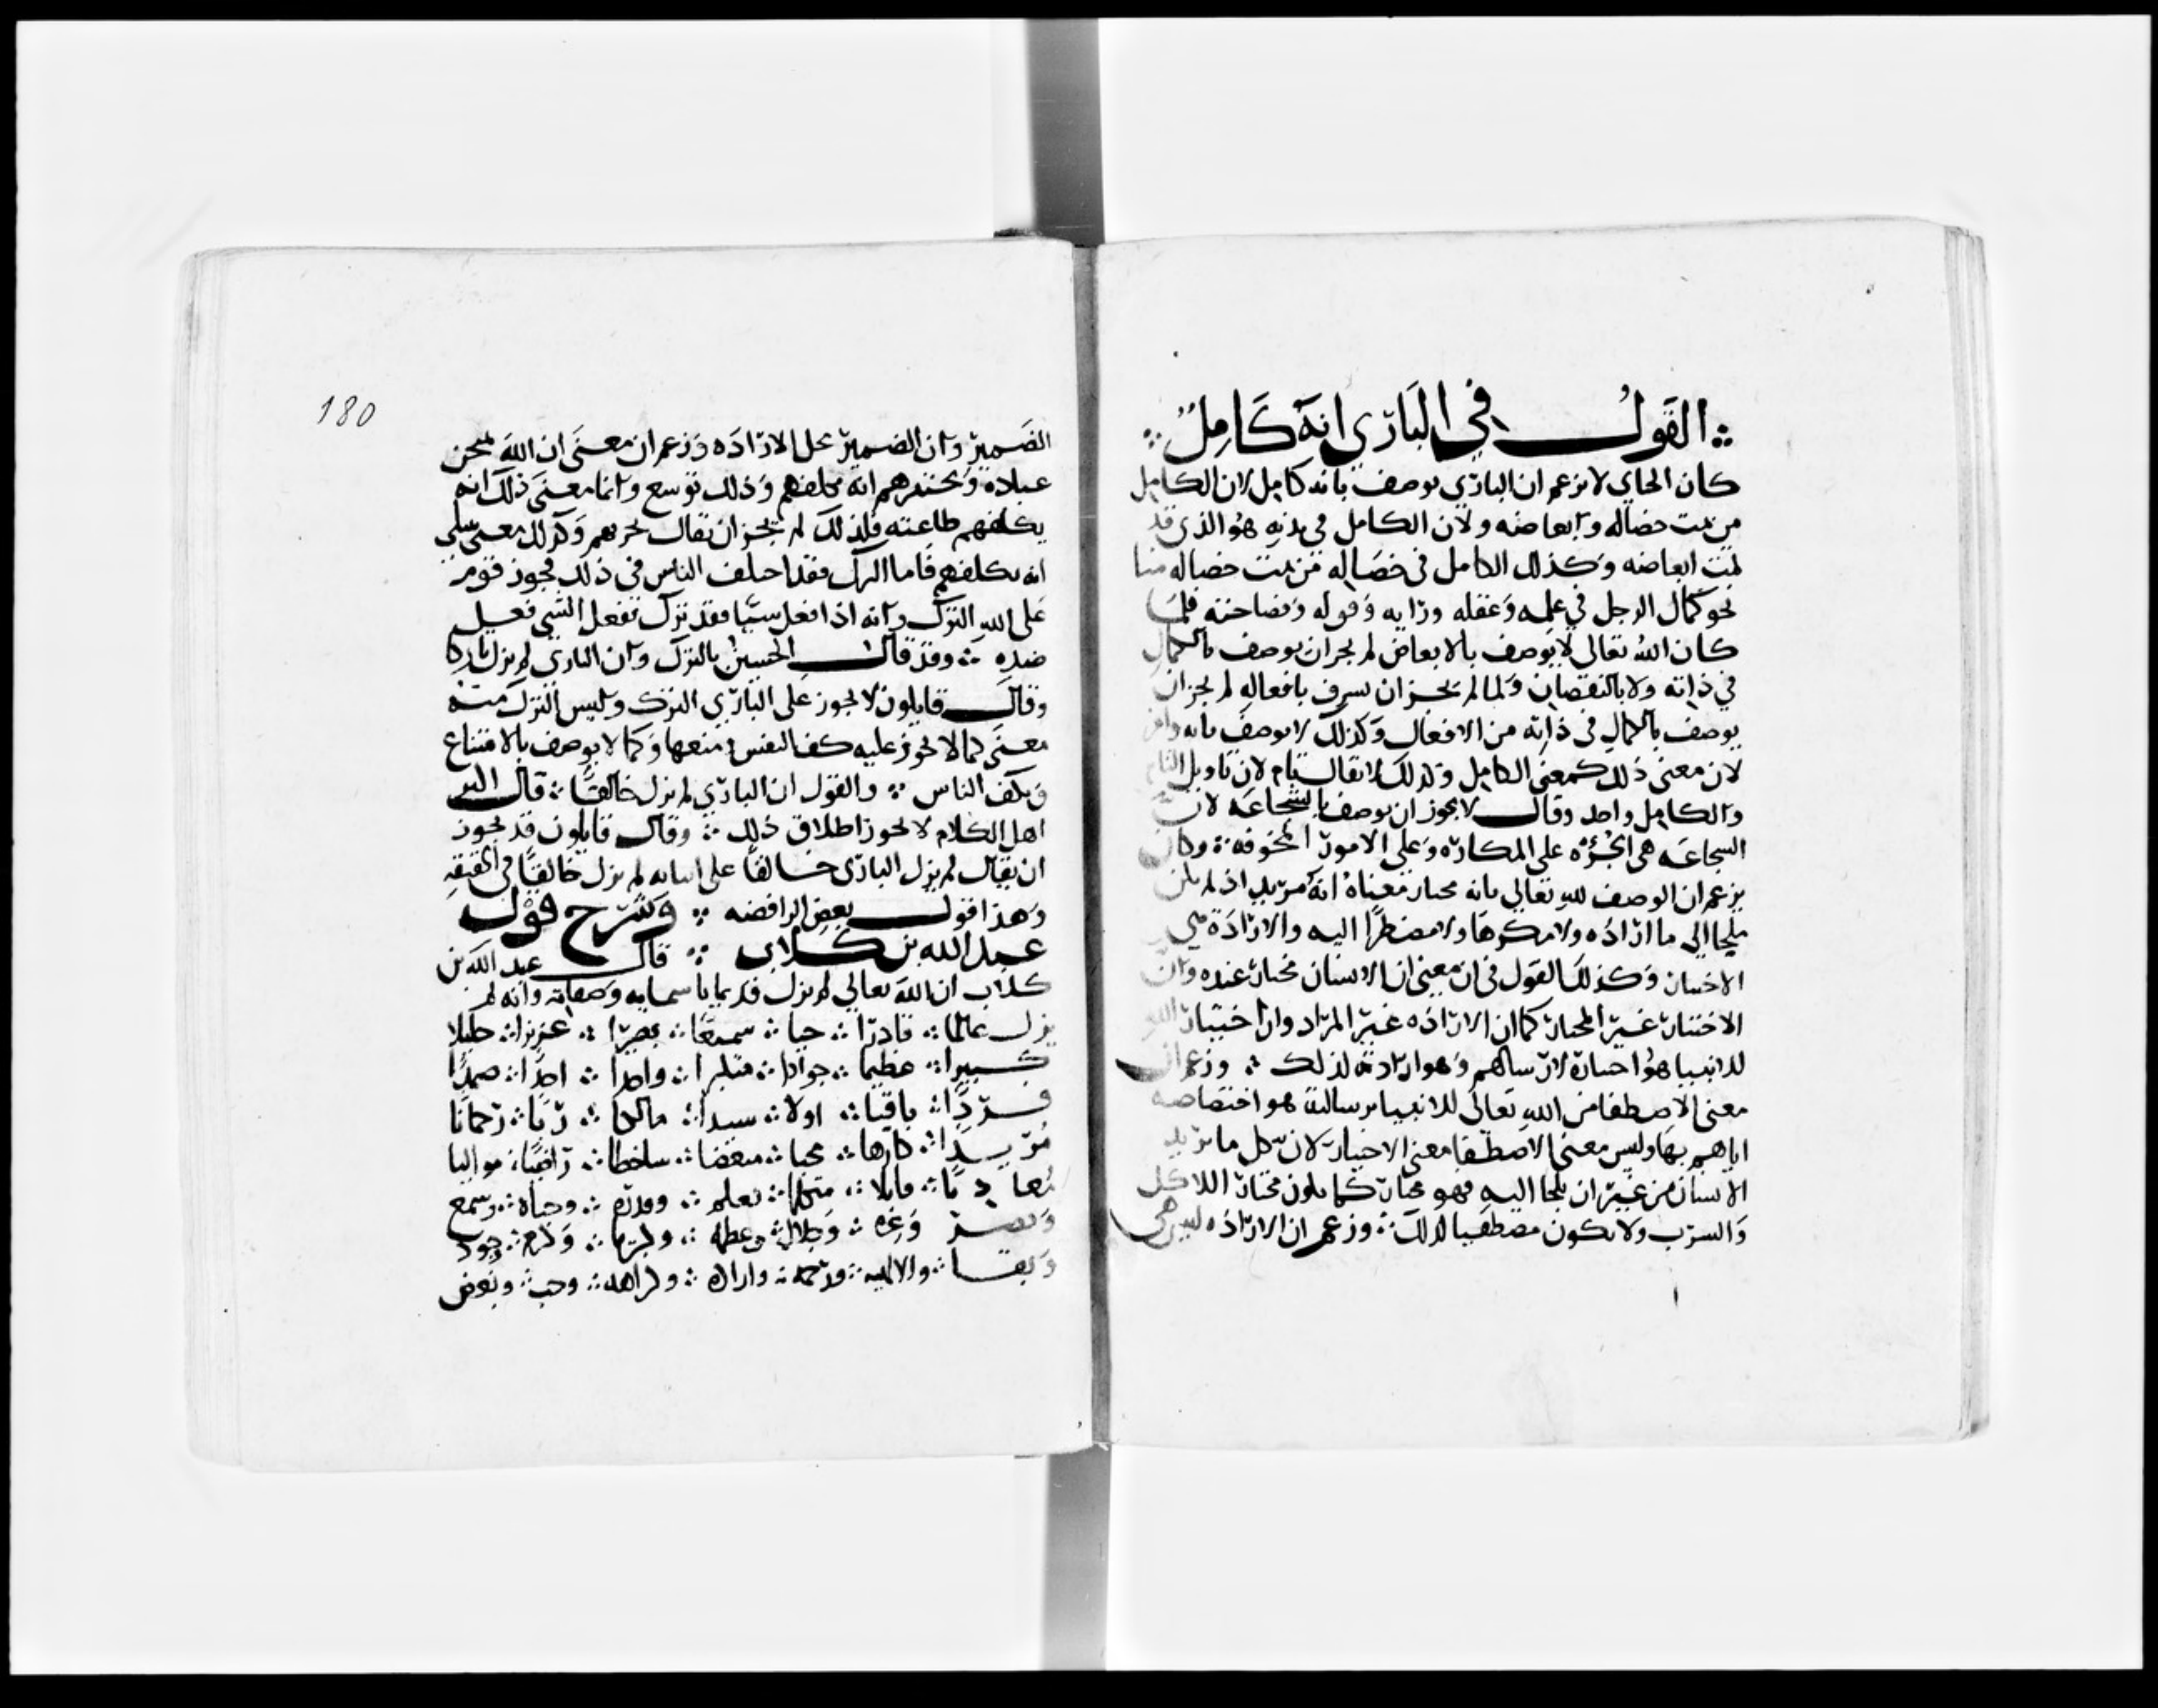 القول في الباري انه كامل
كان الجباي لا يزعم ان الباري يوصف بانه كامل لان الكامل
من تمت خصاله وابعاضه ولان الكامل في بدنه هو الذي قد
تمت ابعاضه وكذلك الكامل في خصاله من تمت خصاله منا
نحو كمال الرجل في علمه وعقله ورايه وقوله وفصاحته فلما
كان الله تعالى لا يوصف بالابعاض لم يجز ان يوصف بالكمال
في ذاته ولا بالنقصان ولما لم يجز ان يشرف بافعاله لم يجز ان
يوصف بالكمال في ذاته من الافعال وكذلك لا يوصف بانه وافر
لان معنى ذلك كمعنى الكامل وكذلك لا يقال تام لان تاويل التام
والكامل واحد وقال لا يجوز ان يوصف بالشجاعه لان
الشجاعه هي الجرؤه على المكاره وعلى الامور المخوفه وكان
يزعم ان الوصف لله تعالى بانه مختار معناه انه مريد اذ لم يكن
ملجا الى ما اراده ولا مكرها ولا مضطرا اليه والارادة هي
الاختيار وكذلك القول في ان معنى ان الانسان مختار عنده وان
الاختيار غير المختار كما ان الاراده غير المراد وان اختيار الله
للانبيا هو اختياره لارسالهم وهو ارادته لذلك وزعم ان
معنى الاصطفا من الله تعالى للانبيا برسالته هو اختصاصه
اياهم بها وليس معنى الاصطفا معنى الاختيار لان كل ما يريد
الانسان من غير ان يلجا اليه فهو مختار كما يكون مختارا للاكل
والشرب ولا يكون مصطفيا لذلك وزعم ان الاراده ليس هي
180
الضمير وان الضمير محل الاراده وزعم ان معنى ان الله يمتحن
عباده ويختبرهم انه مكلفهم وذلك توسع وانما معنى ذلك انه
يكلفهم طاعته فلذلك لم يجز ان يقال يجربهم وكذلك معنى يبتلي
انه يكلفهم فاما الترك فقد اختلف الناس في ذلك فجوز قوم
على الله الترك وانه اذا فعل شيا فقد ترك بفعل الشي فعل
ضده وقد قال الحسين بالترك وان الباري لم يزل تاركا
وقال قايلون لا يجوز على الباري الترك وليس للترك منه
معنى كما لا يجوز عليه كف النفس ومنعها وكما لا يوصف بالامتناع
وبكف الناس والقول ان الباري لم يزل خالقا قال اكثر
اهل الكلام لا يجوز اطلاق ذلك وقال قايلون قد يجوز
ان يقال لم يزل الباري خالقا على اثباته لم يزل خالقا في الحقيقه
وهذا قول بعض الرافضه وشرح قول
عبد الله بن كلاب قال عبد الله بن
كلاب ان الله تعالى لم يزل قديما باسمايه وصفاته وانه لم
يزل عالما قادرا حيا سميعا بصيرا عزيزا جليلا
كبيرا عظيما جوادا متكبرا واحدا احدا صمدا
فردا باقيا اولا سيدا مالكا ربا رحمانا
مريدا كارها محبا مبغضا ساخطا راضيا مواليا
معاديا قايلا متكلما بعلم وقدره وحياه وسمع
وبصر وعزه وجلال وعظمه وكبريا وكرم وجود
وبقا والالهيه ورحمه واراده وكراهه وحب وبغض